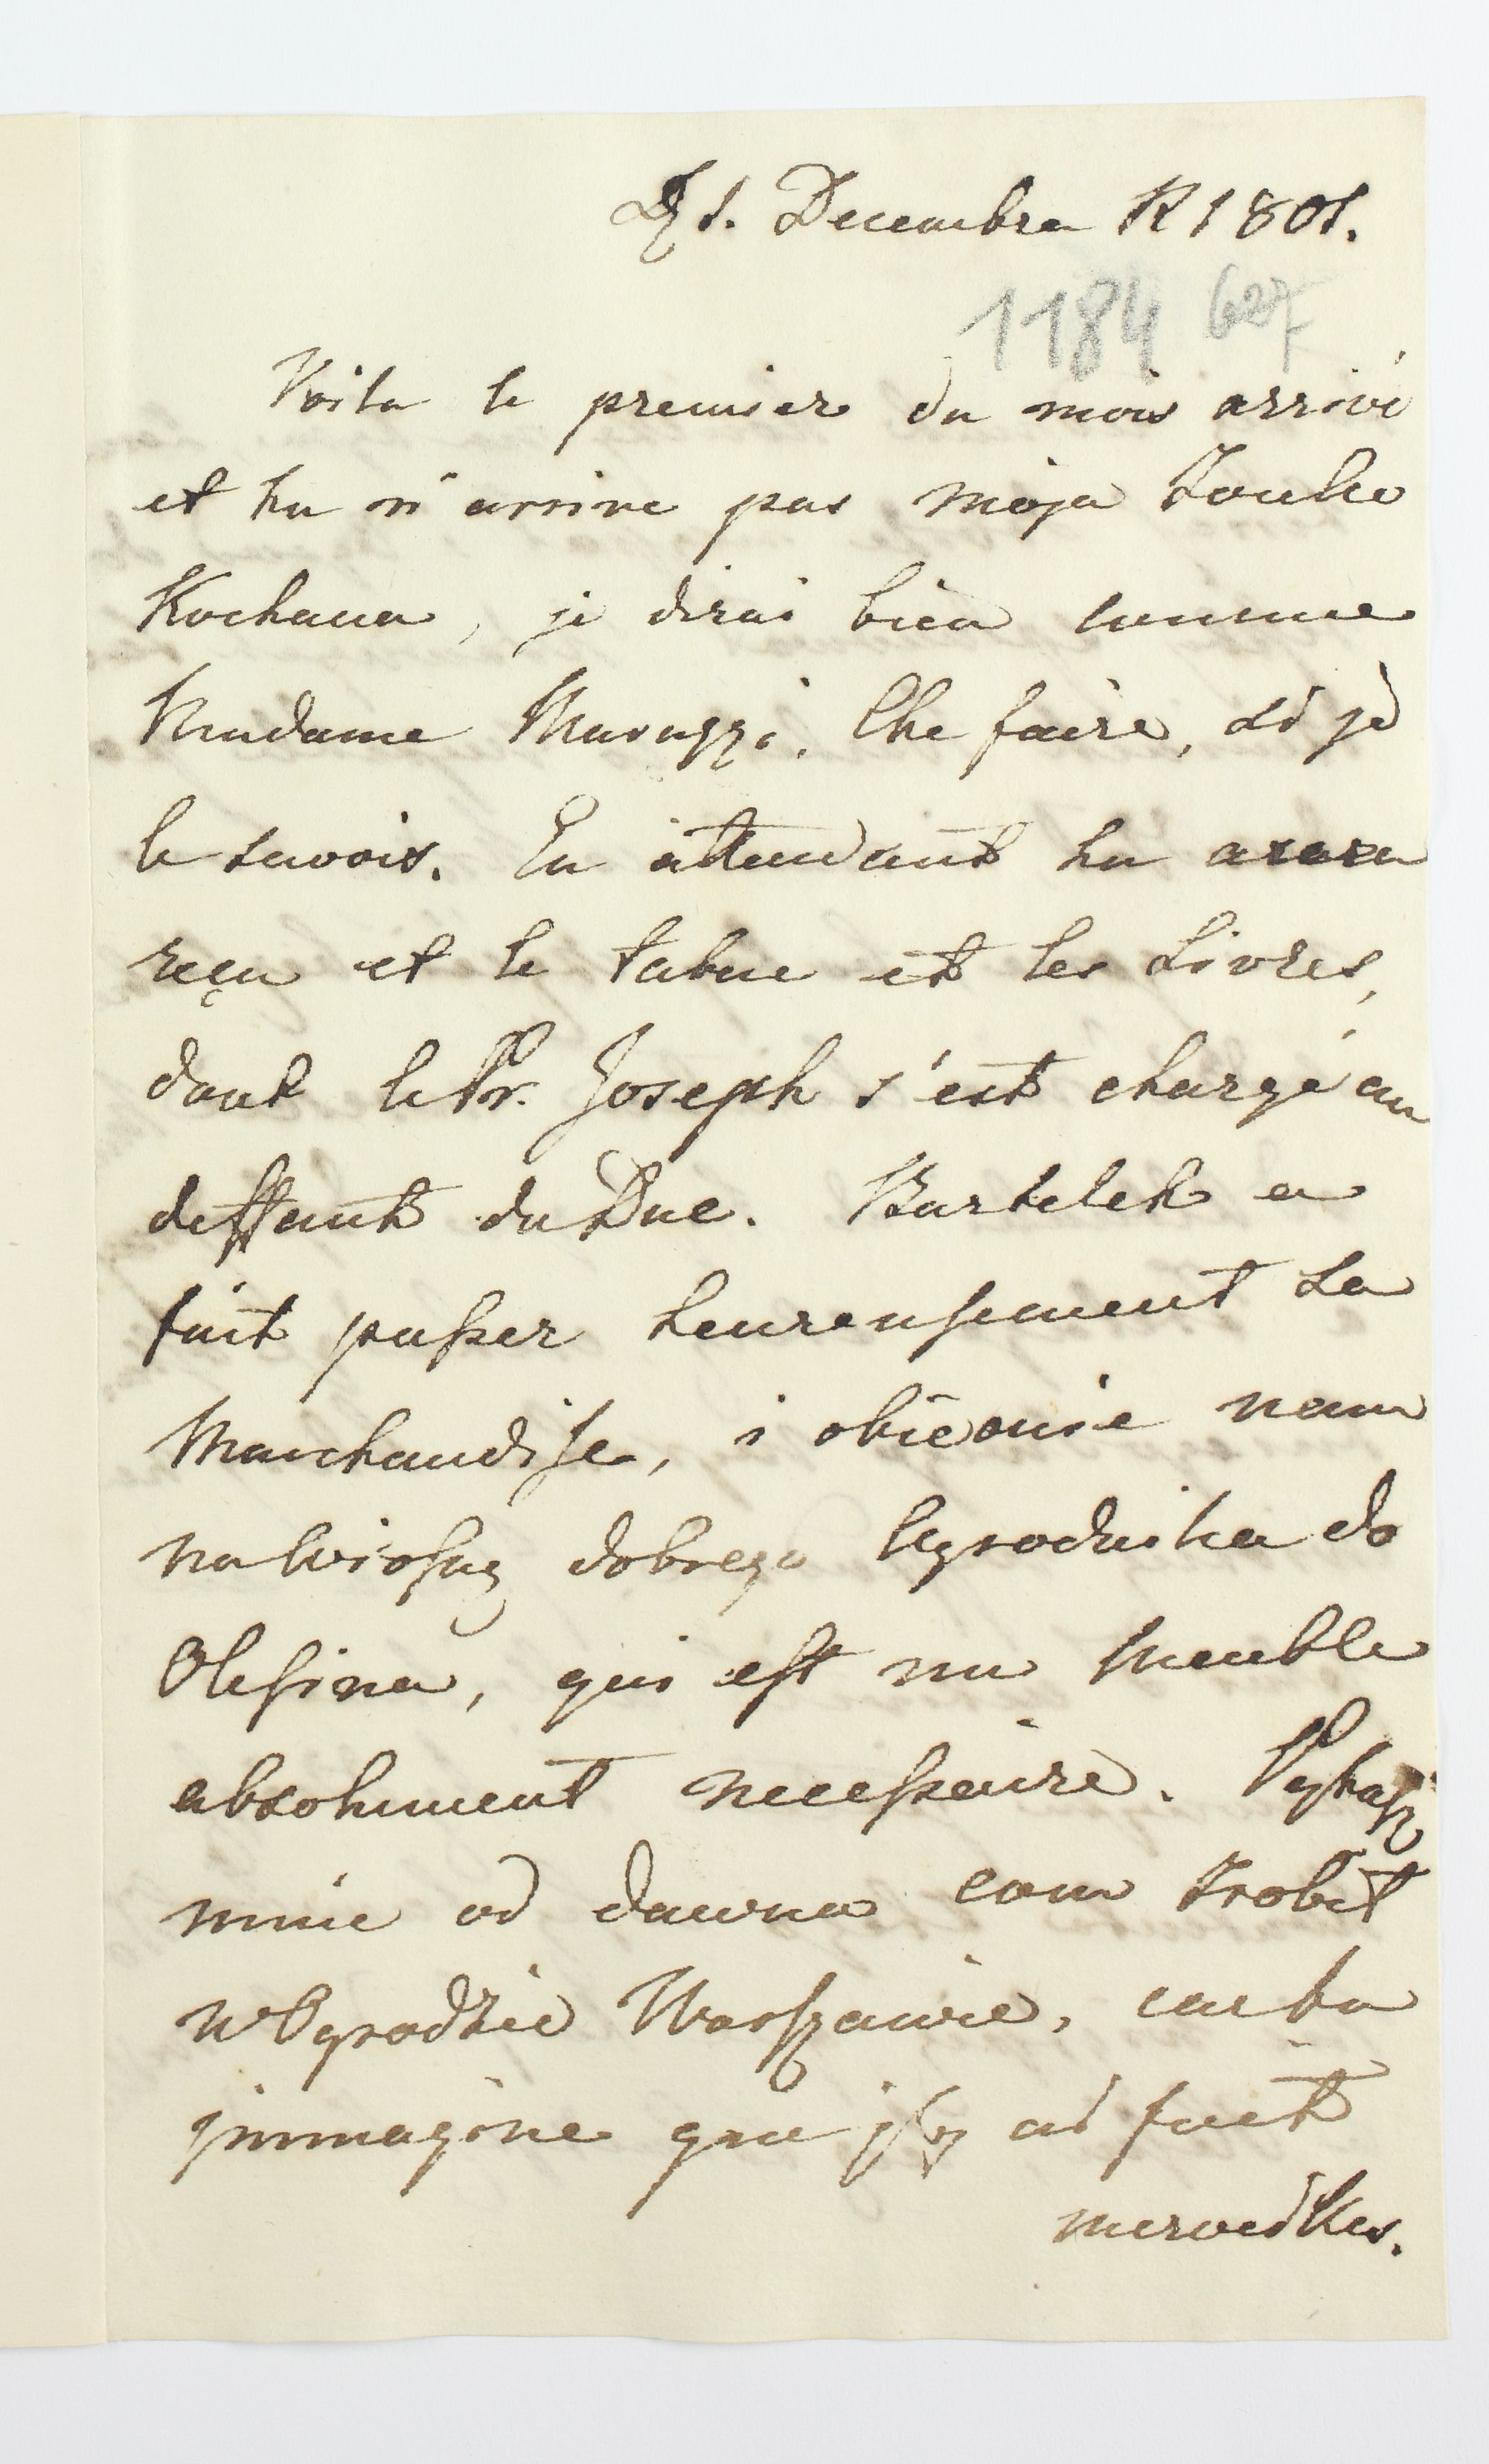 D. 1. Decembra R 1801.
1184 627
Voila le premier du mois arrivé
et tu n'arrive pas moja Zonko
Kochana, je dirai bien comme
Madame Maruzzi. Che faire, si je
le savois. En attendant tu auras
reçu et le tabac et les Livres,
dont le Pr. Joseph s'est chargé au
deffaut du Duc. Bartelek a
fait passer heureusement sa
Marchandise, i obiecuie nam
na Wiosnę dobrego Ogrodnika do
Olesina, qui est un meuble
absolument necessaire. Pytasz
mnie od dawna com zrobił
w Ogrodzie Warszawie, car tu
immagine que j'y ai fait
merveilles.